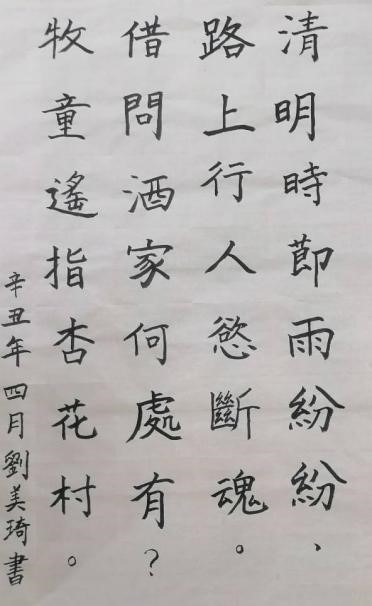 清明時節雨紛紛、
路上行人慾斷魂。
借問酒家何處有？
牧童遙指杏花村。
辛丑年四月劉美琦書